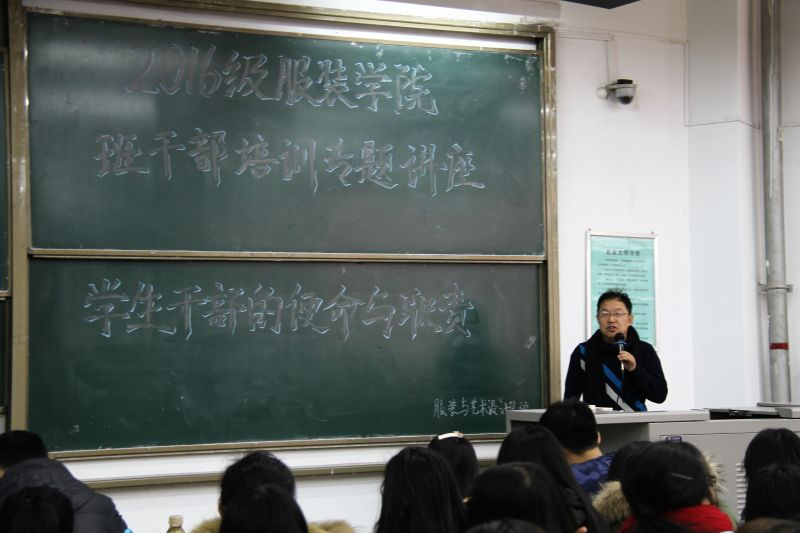 2016级服装学院
班干部培训专题讲座
学生干部的使命与职责
服装与艺术设计学院